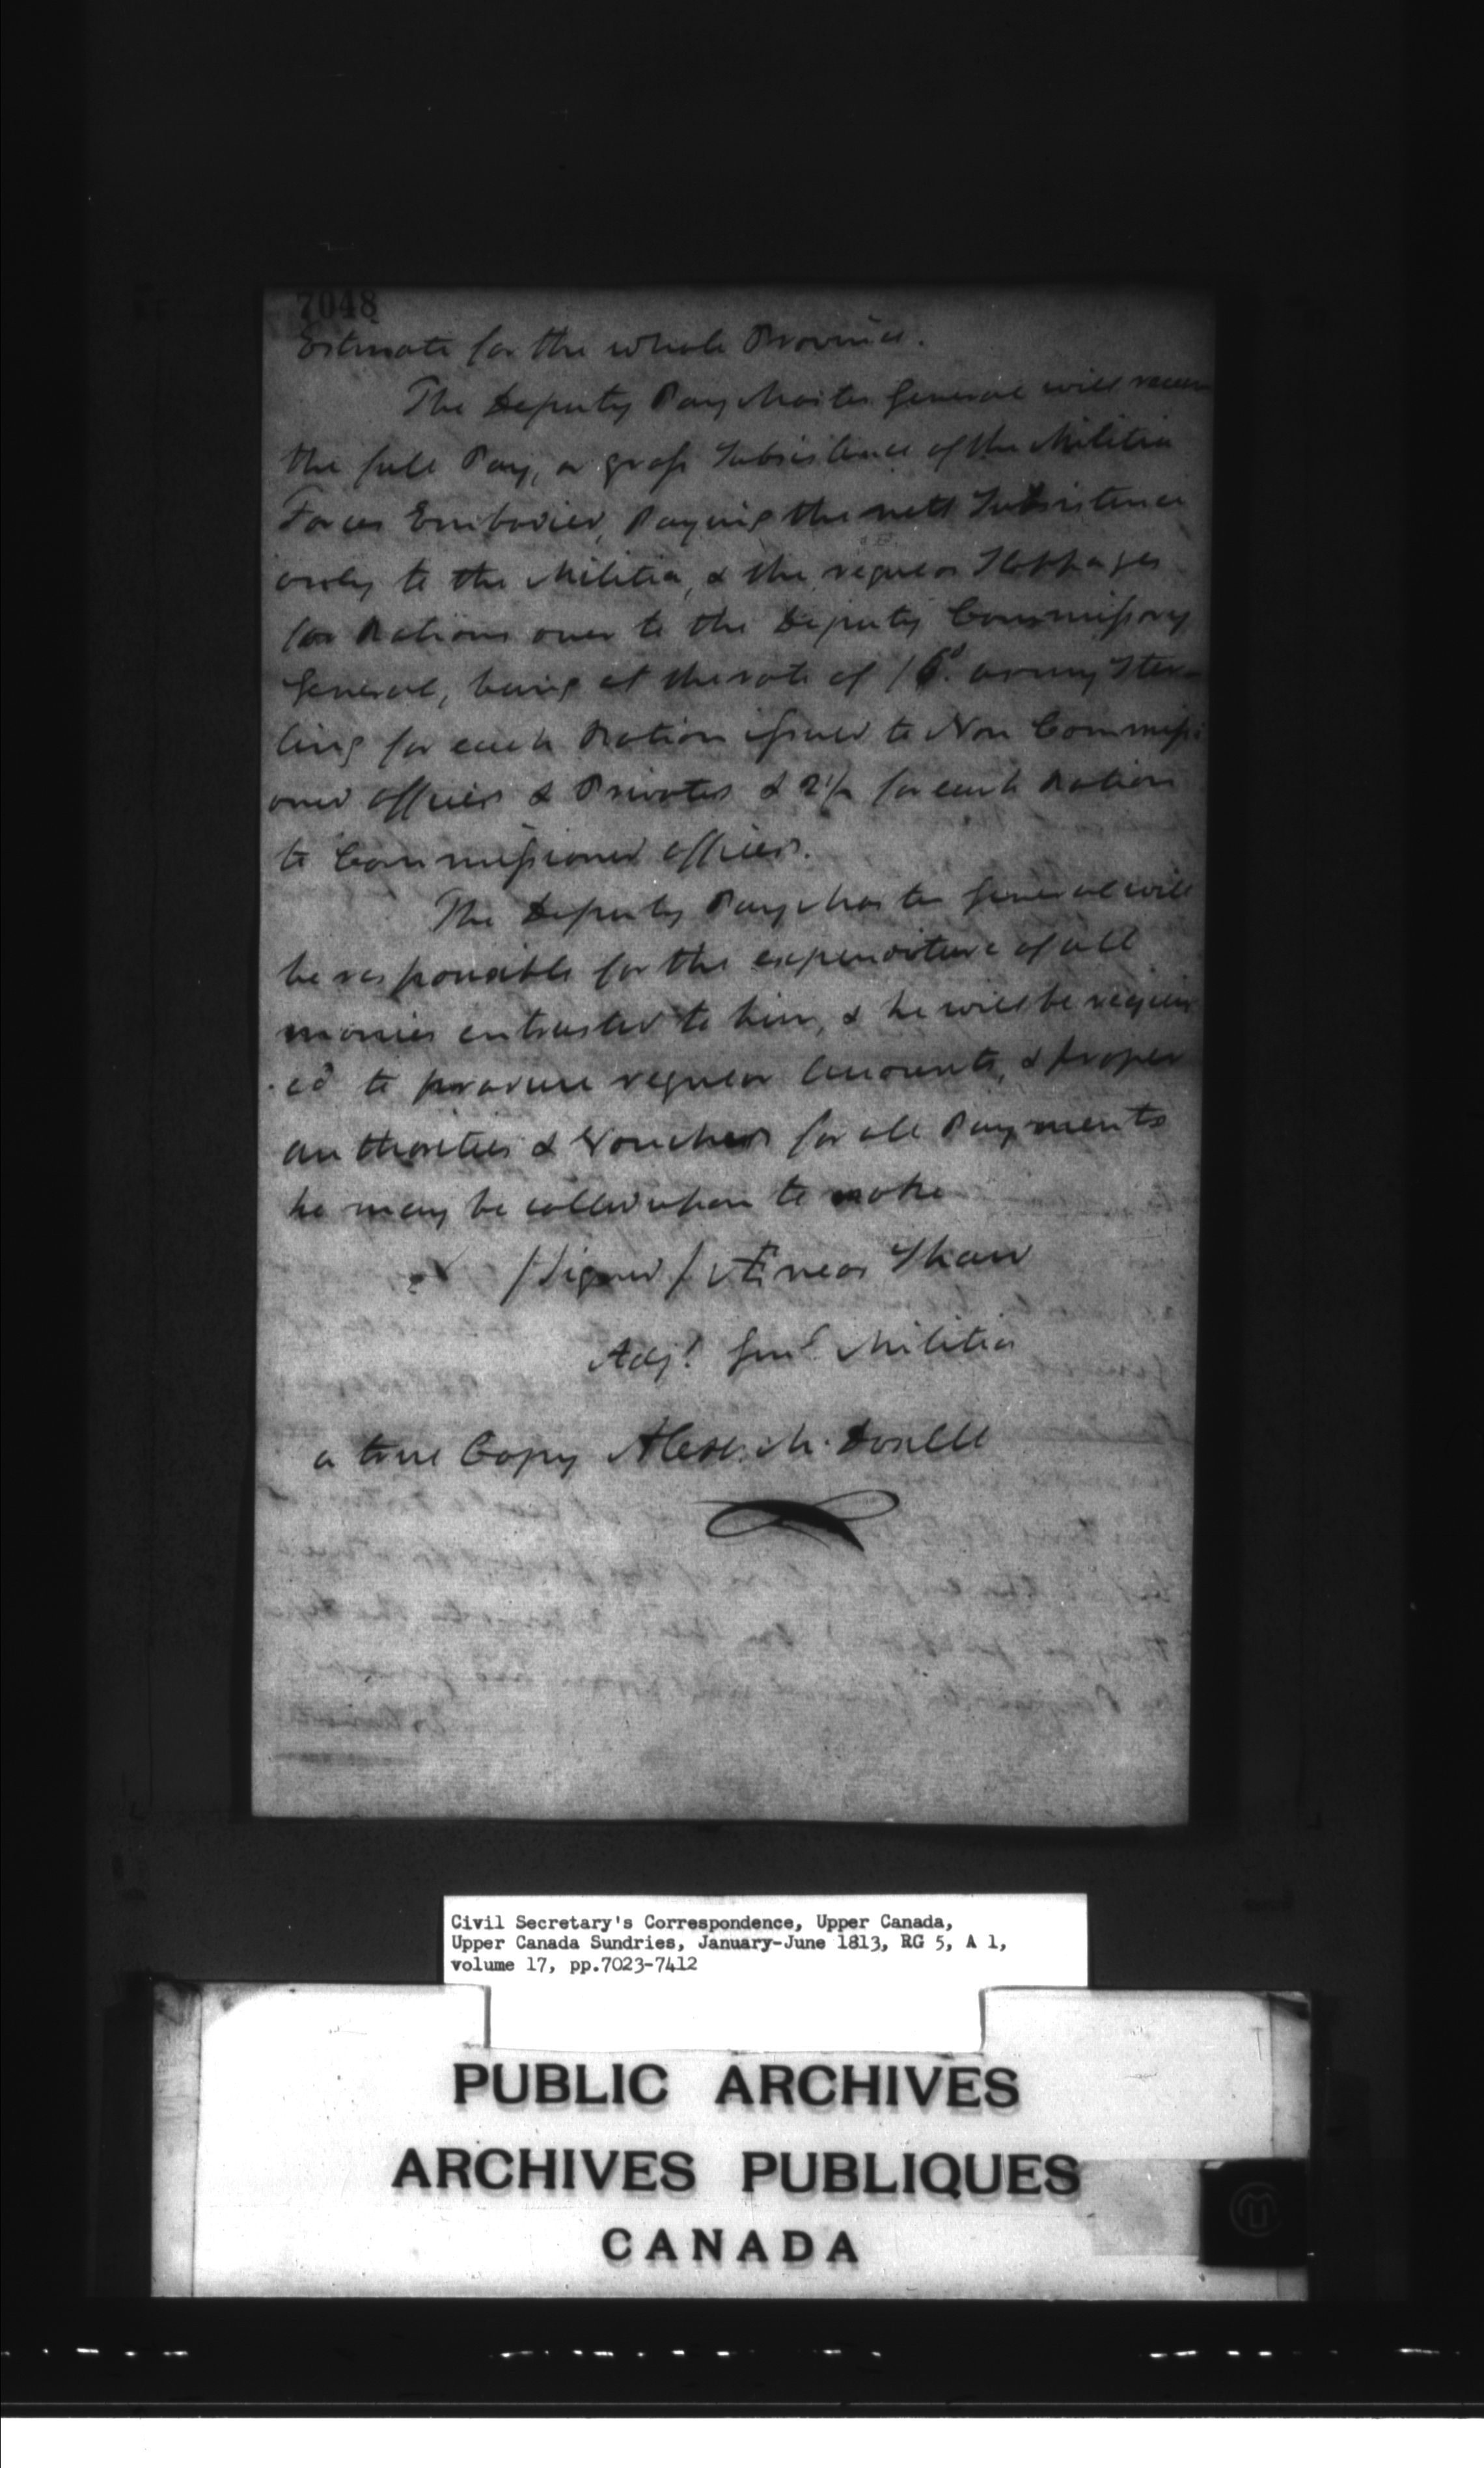 7048
Estimate for the whole Province.
The Deputy Pay Master General will receive
the full Pay, or gross Subsistence of the Militia
Forces Embodied, Paying the nett Subsistence
only to the Militia, & the regular Stoppages
for Rations over to the Deputy Commissary
General, being at the rate of 6d. army Ster-
ling for each Ration issued to Non Commissi
oned officers & Privates & 2½ for each Ration
to Commissioned officers.
The Deputy Pay Master General will
be responsible for the expenditure of all
monies entrusted to him, & he will be requir
-ed to procure regular Accounts, & proper
authorities & Vouchers for all Payments
he may be called upon to make
/Signed/ Æneas Shaw
Adjt. Genl. Militia
a true Copy Alexr. McDonell
Civil Secretary's Correspondence, Upper Canada,
Upper Canada Sundries, January-June 1813, RG 5, A 1,
volume 17, pp.7023-7412
PUBLIC ARCHIVES
ARCHIVES PUBLIQUES
CANADA